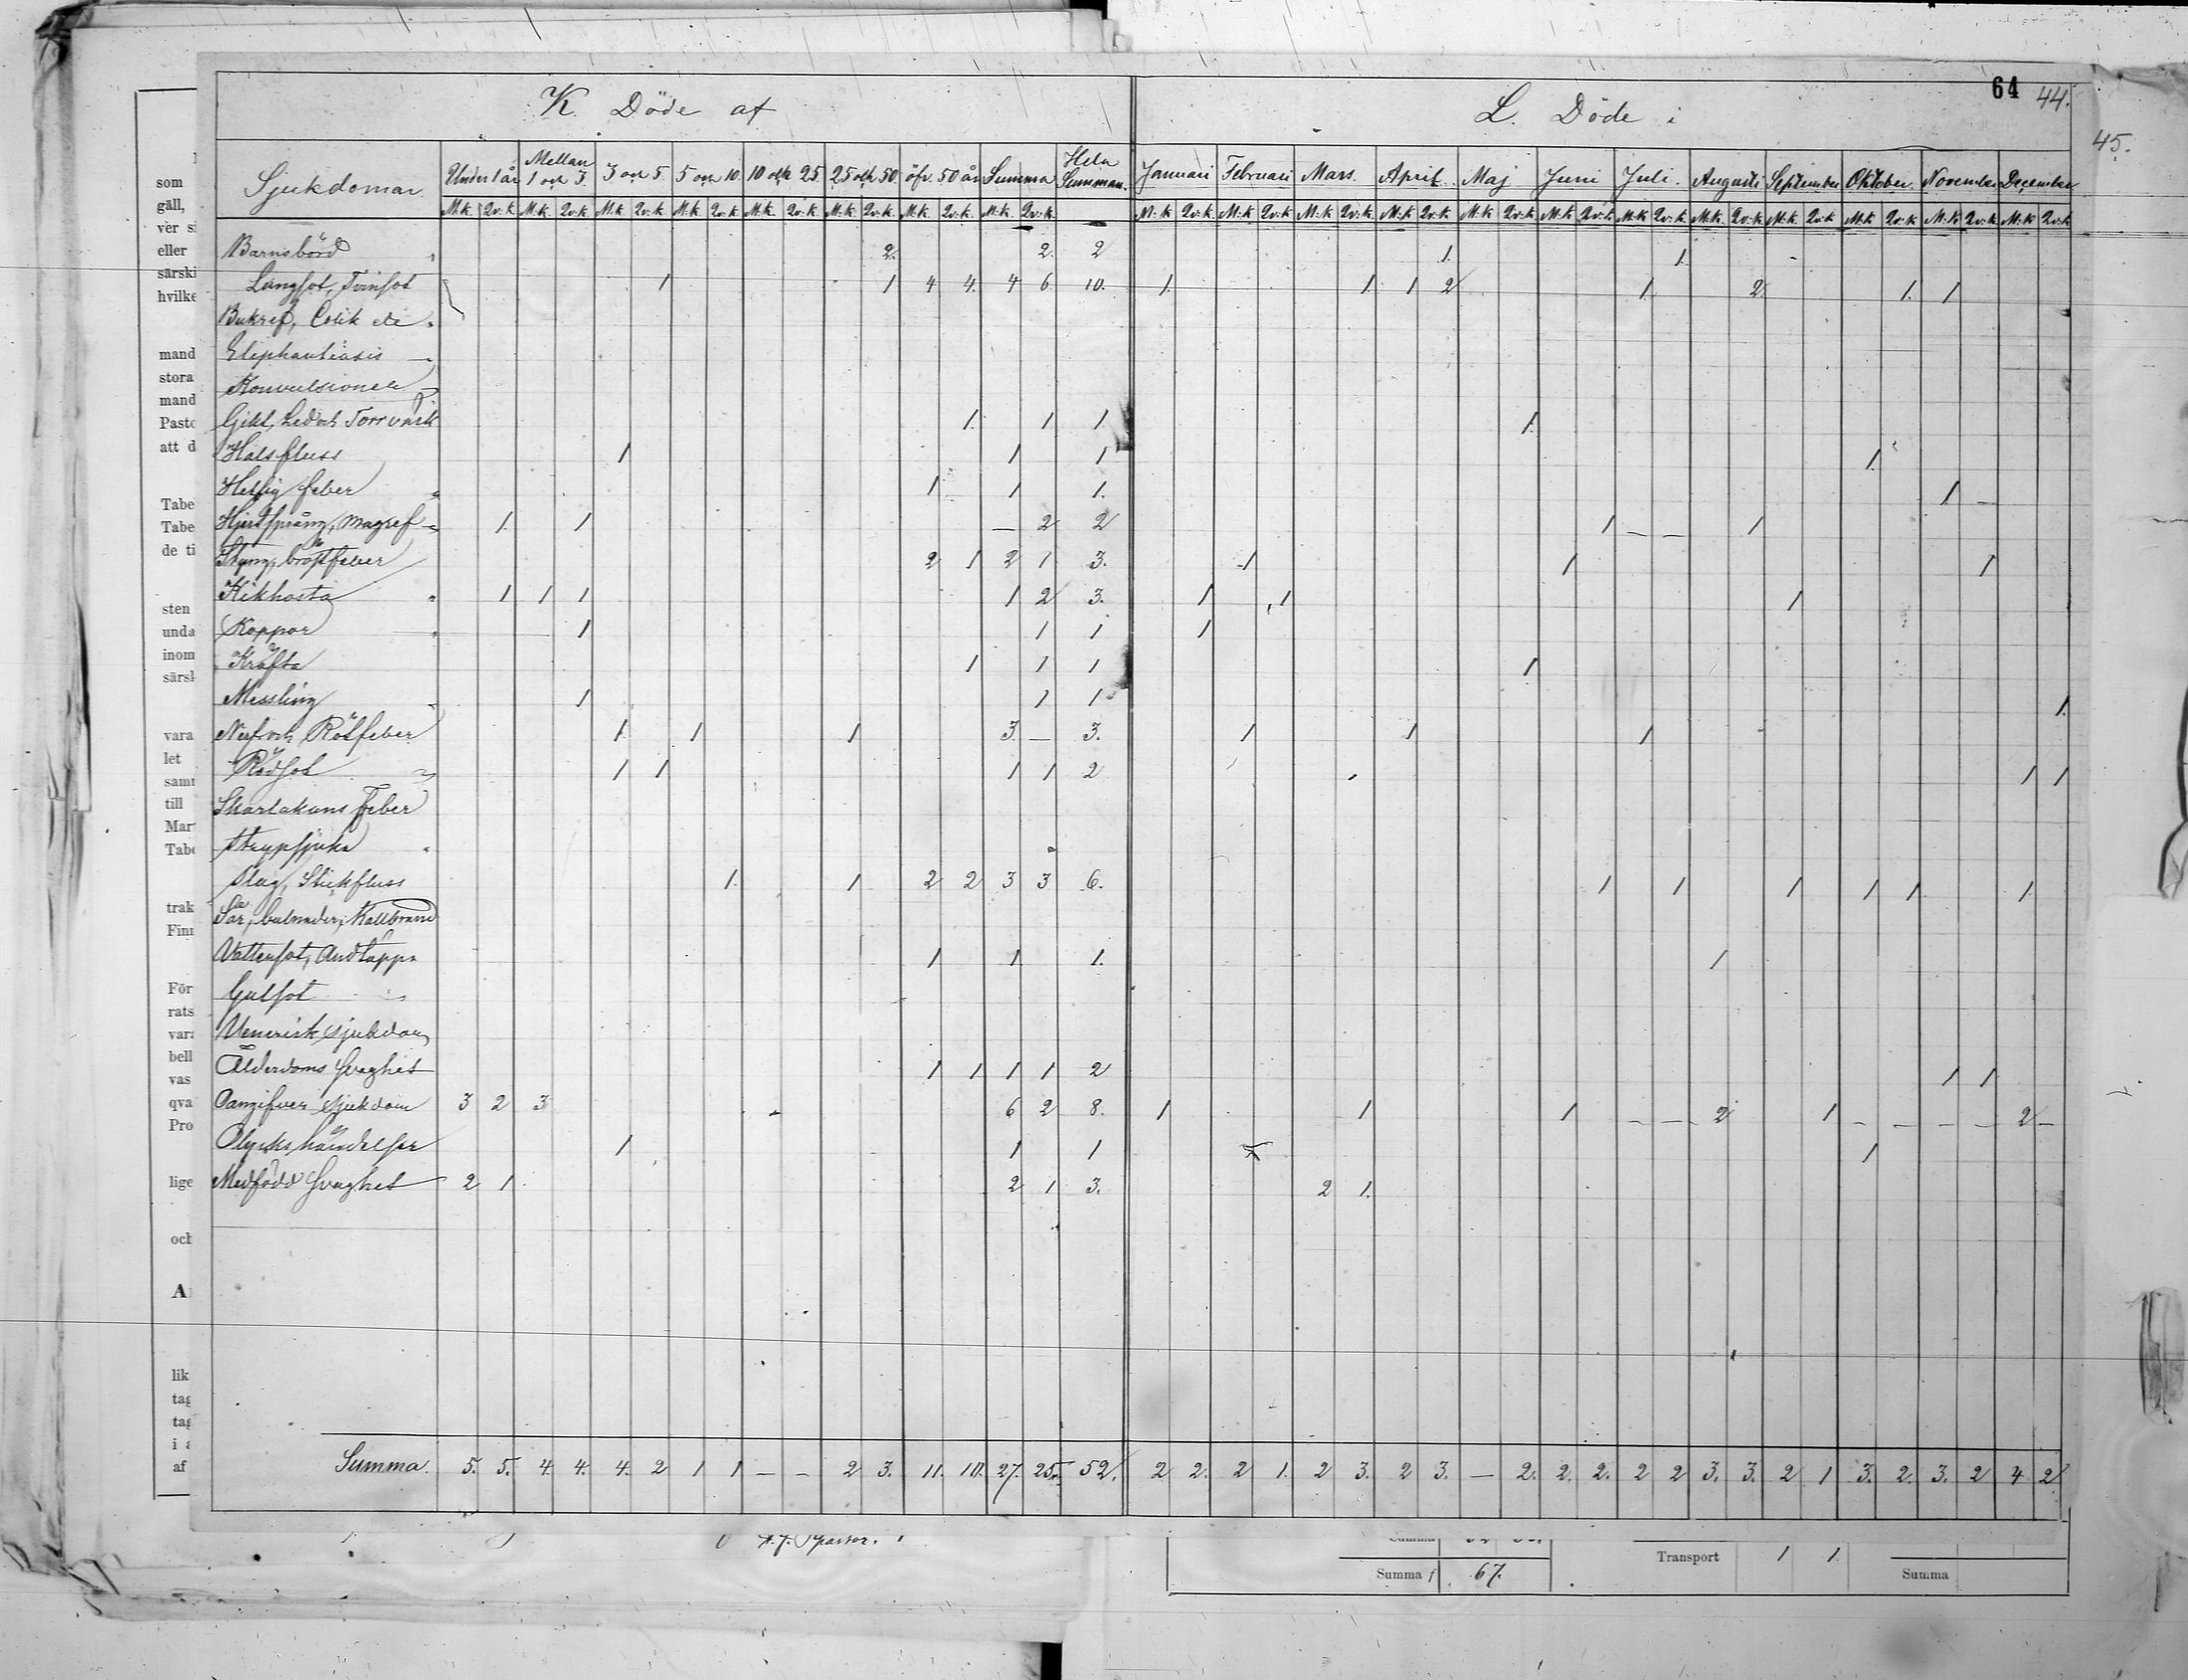 64 44.
45.
K. Döde af
L. Döde i
Sjukdomar Under 1 år Mellan 1 och 3. 3 och 5. 5 och 10. 10 och 25. 25 och 50. öfv. 50 år Summa Hela Summan. Januari Februari Mars. April. Maj Juni Juli. Augusti September Oktober. November December
M.k. Qv.k. M.k. Qv.k. M.k. Qv.k. M.k. Qv.k. M.k. Qv.k. M.k. Qv.k. M.k. Qv.k. M.k. Qv.k. M.k. Qv.k. M.k. Qv.k. M.k. Qv.k. M.k. Qv.k. M.k. Qv.k. M.k. Qv.k. M.k. Qv.k. M.k. Qv.k. M.k. Qv.k. M.k. Qv.k. M.k. Qv.k. M.k. Qv.k.
Barnsbörd 2. 2. 2 1. 1.
Lungsot, Tvinsot 1 1 4 4. 4 6 10. 1. 1 1 2 1. 2 1. 1
Bukref, Colik etc
Elephantiasis
Konvulsioner
Gikt, Led och Torrverk 1. 1 1 1.
Halsfluss 1 1 1 1.
Hetsig feber 1 1 1. 1
Hjertsprång, Magref 1. 1 — 2 2 1 — — 1
Styng, bröstfeber 2 1 2 1 3. 1 1 1
Kikhosta 1 1 1 1 2 3. 1 1 1
Koppor 1 1 1 1
Kräfta 1 1 1 1
Messling 1 1 1 1.
Nerf och Rötfeber 1 1 1 3 — 3. 1 1 1
Rödsot 1 1 1 1 2 1 1
Skarlakans Feber
Strypsjuka
Slag, Stickfluss 1. 1 2 2 3 3 6. 1 1 1 1 1 1
Sår, bulnader, Kallbrand
Vattusot, Andtäppa 1 1 1. 1
Gulsot
Venerisk sjukdom
Ålderdoms Svaghet 1 1 1 1 2 1 1
Oangifven sjukdom 3 2 3 6 2 8. 1 1 1 — — 2 1 — — — — 2 —
Olyckshändelser 1 1 1 1
Medfödd Svaghet 2 1 2 1 3. 2 1.
Summa. 5. 5. 4. 4. 4. 2 1 1 — — 2 3. 11. 10. 27. 25. 52. 2 2. 2 1. 2 3. 2 3. — 2. 2. 2. 2 2 3. 3. 2 1 3. 2. 3. 2 4 2
som
gäll,
eller
särski
hvilke
mand
stora
mand
Pasto
att d
Tabe
Tabe
de ti
sten
unda
inom
särsk
vara
let
till
Mar
Tabe
trak
Finn
För
rats
vara
bell
vas
qva
Pro
lige
och
A
lik
tag
tag
i a
af
Summa 67.
Transport 1 1
Summa